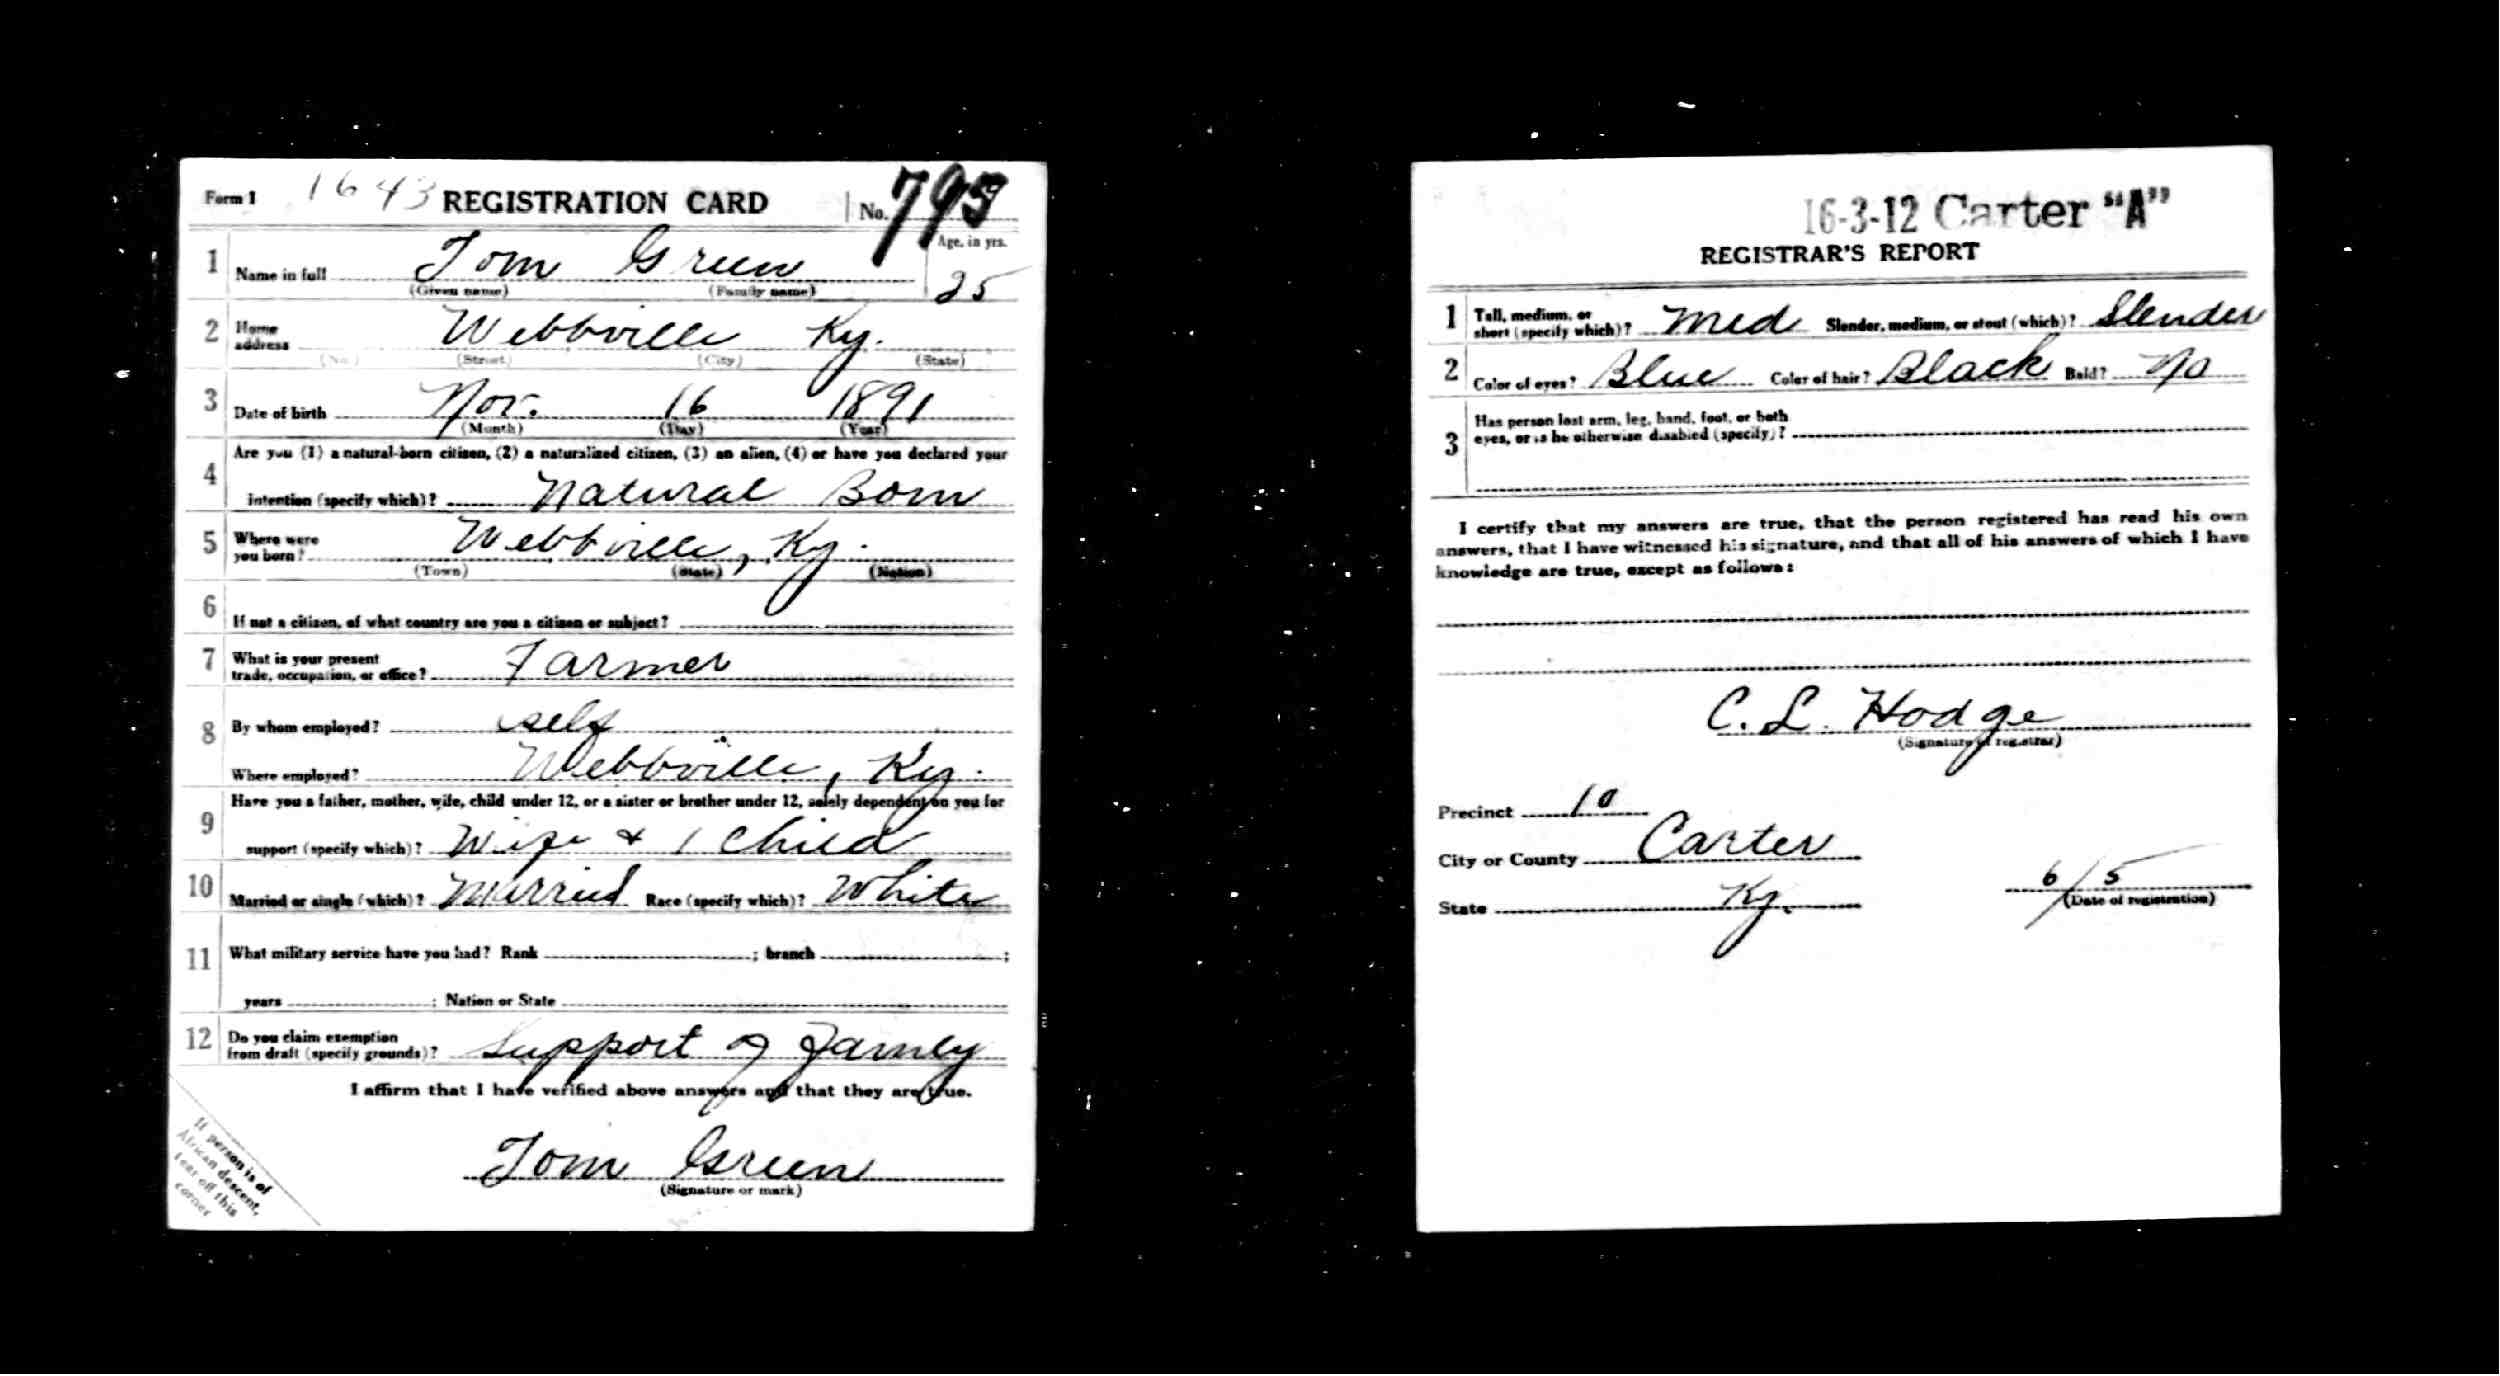 Form 1 1643 REGISTRATION CARD No. 795
1 Name in full Tom Green Age, in yrs. 25
(Given name) (Family name)
2 Home address Webbville Ky.
(No.) (Street) (City) (State)
3 Date of birth Nov. 16 1891
(Month) (Day) (Year)
4 Are you (1) a natural-born citizen, (2) a naturalized citizen, (3) an alien, (4) or have you declared your
intention (specify which)? Natural Born
5 Where were you born? Webbville, Ky.
(Town) (State) (Nation)
6 If not a citizen, of what country are you a citizen or subject?
7 What is your present trade, occupation, or office? Farmer
8 By whom employed? self
Where employed? Webbville, Ky.
9 Have you a father, mother, wife, child under 12, or a sister or brother under 12, solely dependent on you for
support (specify which)? Wife + 1 child
10 Married or single (which)? Married Race (specify which)? White
11 What military service have you had? Rank ; branch ;
years ; Nation or State
12 Do you claim exemption from draft (specify grounds)? Support of Family
I affirm that I have verified above answers and that they are true.
Tom Green
(Signature or mark)
If person is of
African descent,
tear off this
corner
16-3-12 Carter "A"
REGISTRAR'S REPORT
1 Tall, medium, or short (specify which)? Med Slender, medium, or stout (which)? Slender
2 Color of eyes? Blue Color of hair? Black Bald? No
3 Has person lost arm, leg, hand, foot, or both
eyes, or is he otherwise disabled (specify)?
I certify that my answers are true, that the person registered has read his own
answers, that I have witnessed his signature, and that all of his answers of which I have
knowledge are true, except as follows:
C. L. Hodge
(Signature of registrar)
Precinct 10
City or County Carter
State Ky. 6/5
(Date of registration)